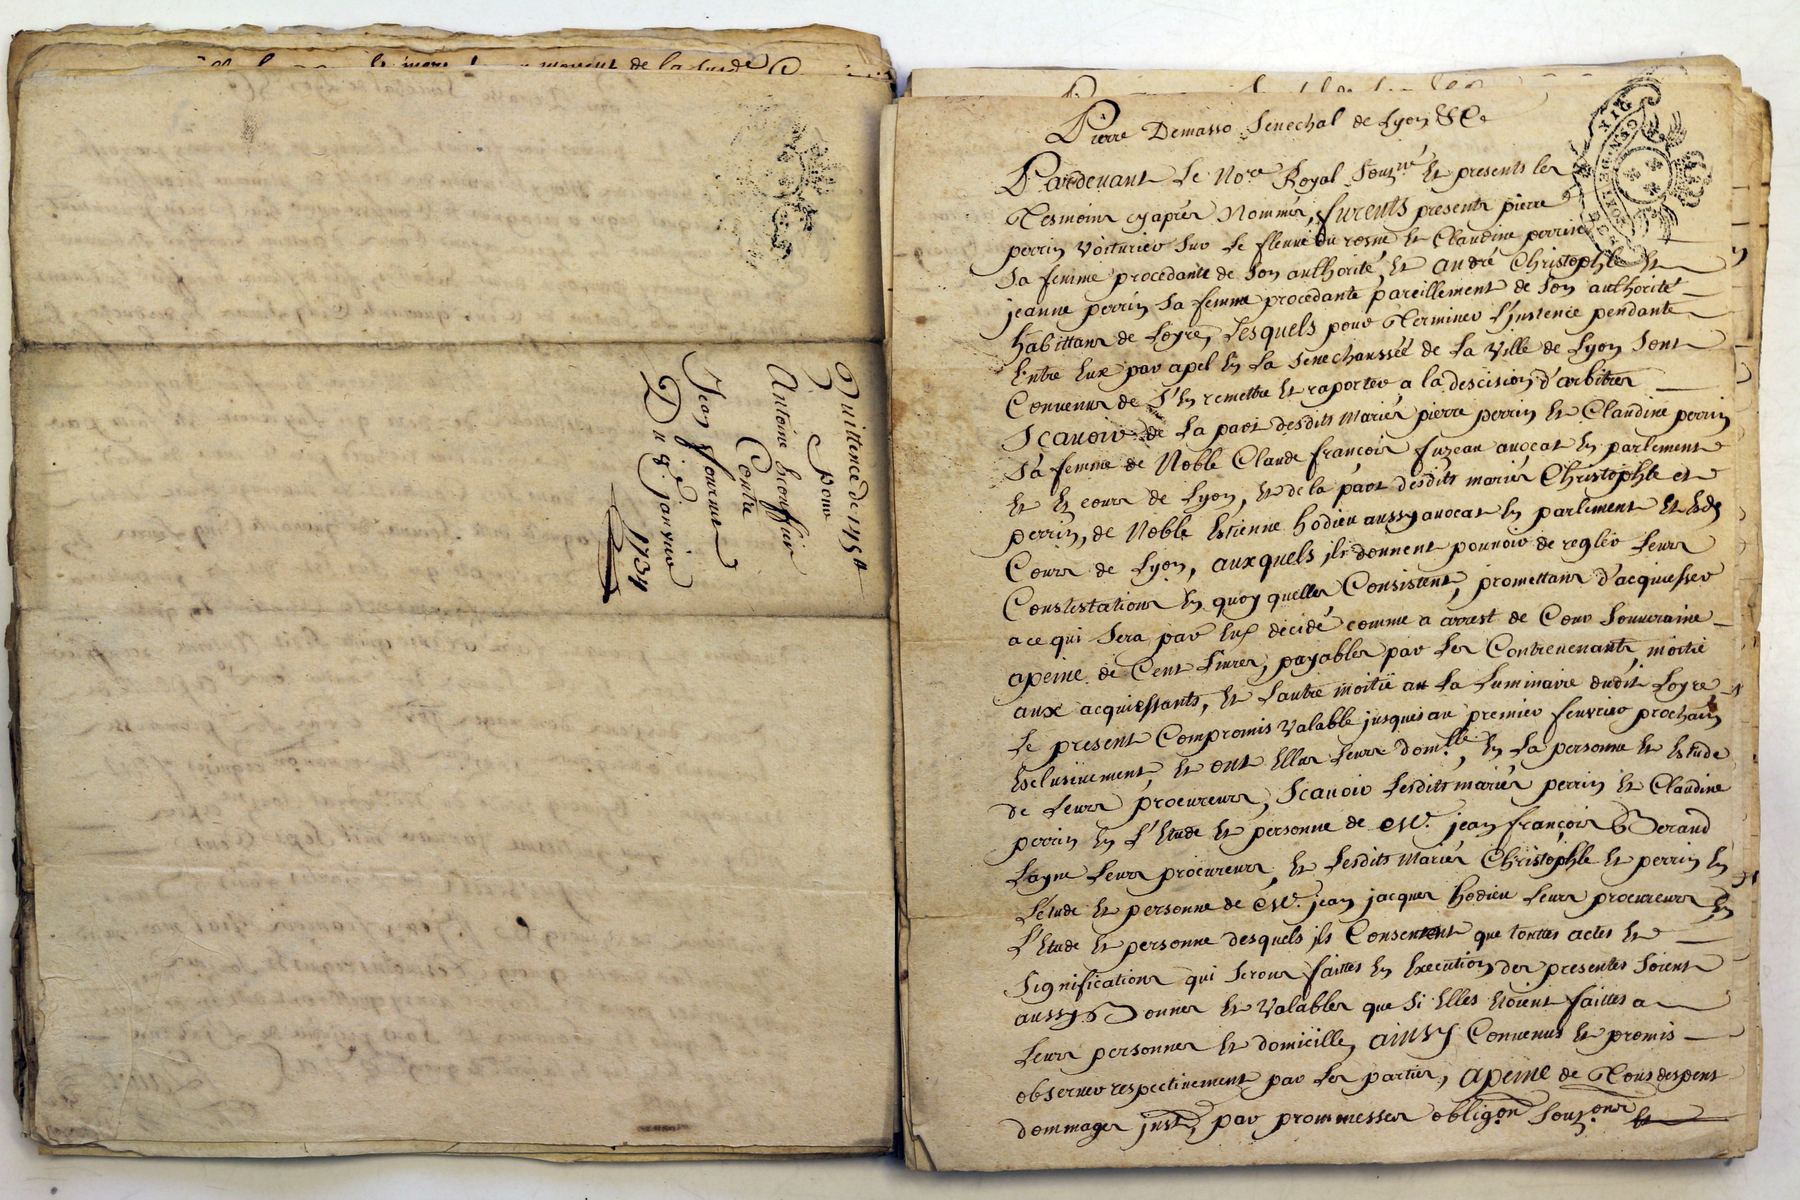 Quittence de 145#
pour
Antoine
Contre
Jean fournet
Du 8e janvier
1734
Pierre Demasso Senechal de Lyon &Ca
Pardevant Le Nore Royal Souzné Et presents les
Tesmoins cyaprés Nommés, furents presents pierre
perrin Voiturier Sur Le fleuve du rosne Et Claudine perrin
Sa femme procedante de Son authorité, Et andré Christophle Et
jeanne perrin Sa femme procedante pareillement de Son authorité
habittans de Loyre, Lesquels pour Terminer L'instence pendante
Entre Eux par apel En La Senechaussée de La Ville de Lyon Sont
Convenus de S'En remettre Et raporter a la descision d'arbitres
Scavoir de La part desdits Mariés pierre perrin Et Claudine perrin
Sa femme de Noble Claude françois fuzeau avocat En parlement
Et Es cours de Lyon, Et de la part desdits mariés Christophle et
perrin, de Noble Estienne hodieu aussy avocat En parlement Et Esd
Cours de Lyon, auxquels ils donnent pouvoir de regler Leurs
Constestations En quoy quelles Consistent, promettans d'acquiesser
a ce qui Sera par Eux décidé comme a arrest de Cour Souveraine
apeine de Cent Livres, payables par Les Contrevenants, moitié
aux acquiessants, Et Lautre moitié au La Luminaire dudit Loyre
Le present Compromis Valable jusques au premier fevrier prochain
Esclusivement, Et ont Ellus Leurs domlle En La personne Et Estude
de Leurs procureurs, Scavoir Lesdits mariés perrin Et Claudine
perrin En L'Etude Et personne de Me. jean françois Beraud
Layne Leurs procureurs, Et Lesdits Mariés Christophle Et perrin En
Létude Et personne de Me. jean jacques hodieu Leurs procureurs En
L'Etude Et personne desquels ils Consentent que touttes actes Et
Significations qui Serons faittes En Execution des presentes Soient
aussy Bonnes Et Valables que Si Elles Etoient faittes a
Leurs personnes Et domicille, ainsy Convenus Et promis
observer respectivement par Les parties, apeine de Tous despens
dommages jnst, par prommesses obligon Souzons Et